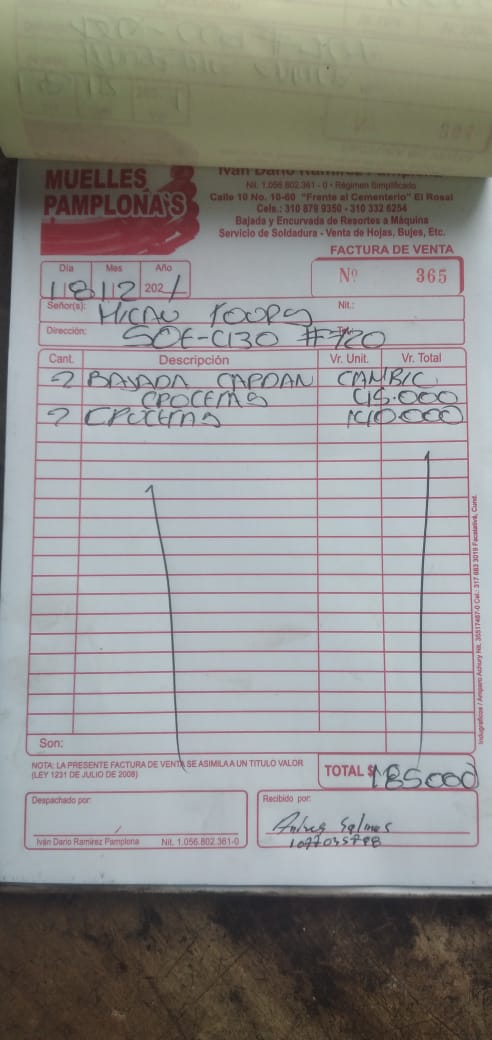 MUELLES
PAMPLONA'S
Nit. 1.056.802.361 - 0 • Régimen Simplificado
Calle 10 No. 10-60 "Frente al Cementerio" El Rosal
Cels.: 310 879 9350 - 310 332 6254
Bajada y Encurvada de Resortes a Máquina
Servicio de Soldadura - Venta de Hojas, Bujes, Etc.
FACTURA DE VENTA
Día Mes Año
18 12 2021
Nº 365
Señor(s): Nit.:
Dirección: SOE-C130 #720
Cant. Descripción Vr. Unit. Vr. Total
2 BAJADA CARDAN CAMBIO
45.000
2 140.000
Son:
NOTA: LA PRESENTE FACTURA DE VENTA SE ASIMILA A UN TITULO VALOR
(LEY 1231 DE JULIO DE 2008)
TOTAL $ 185000
Despachado por:
Iván Darío Ramírez Pamplona Nit. 1.056.802.361-0
Recibido por:
Andres Salinas
Indugraficos / Amparo Achury Nit. 35517467-0 Cel.: 317 683 3019 Facatativá, Cund.